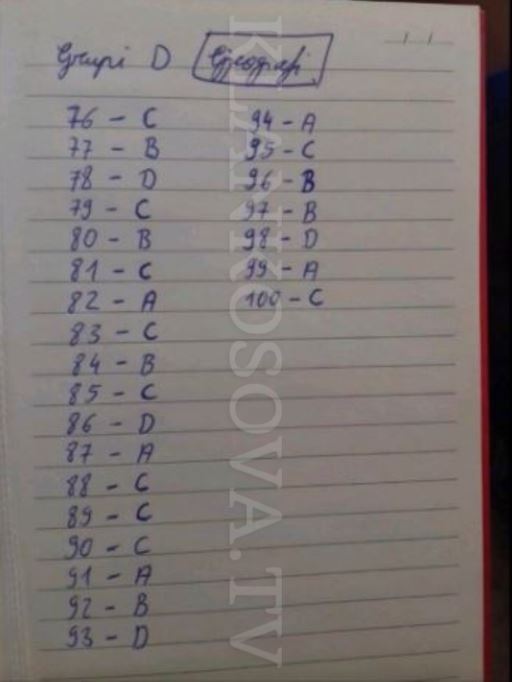 Grupi D Gjeografi
76 - C
77 - B
78 - D
79 - C
80 - B
81 - C
82 - A
83 - C
84 - B
85 - C
86 - D
87 - A
88 - C
89 - C
90 - C
91 - A
92 - B
93 - D
94 - A
95 - C
96 - B
97 - B
98 - D
99 - A
100 - C
KLANKOSOVA.TV